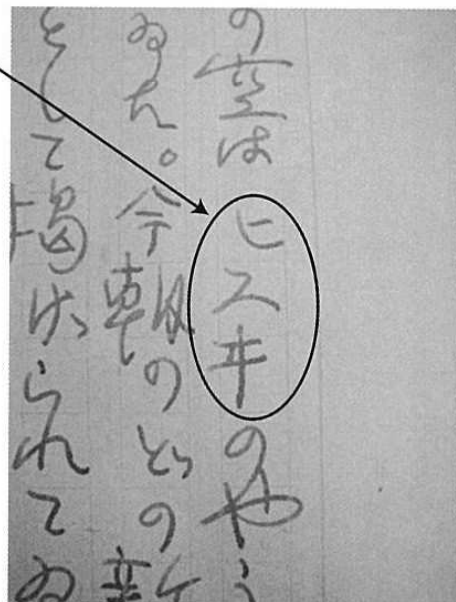 の空はヒスヰのやう
ゐた。今朝のどの新
として掲げられてゐ